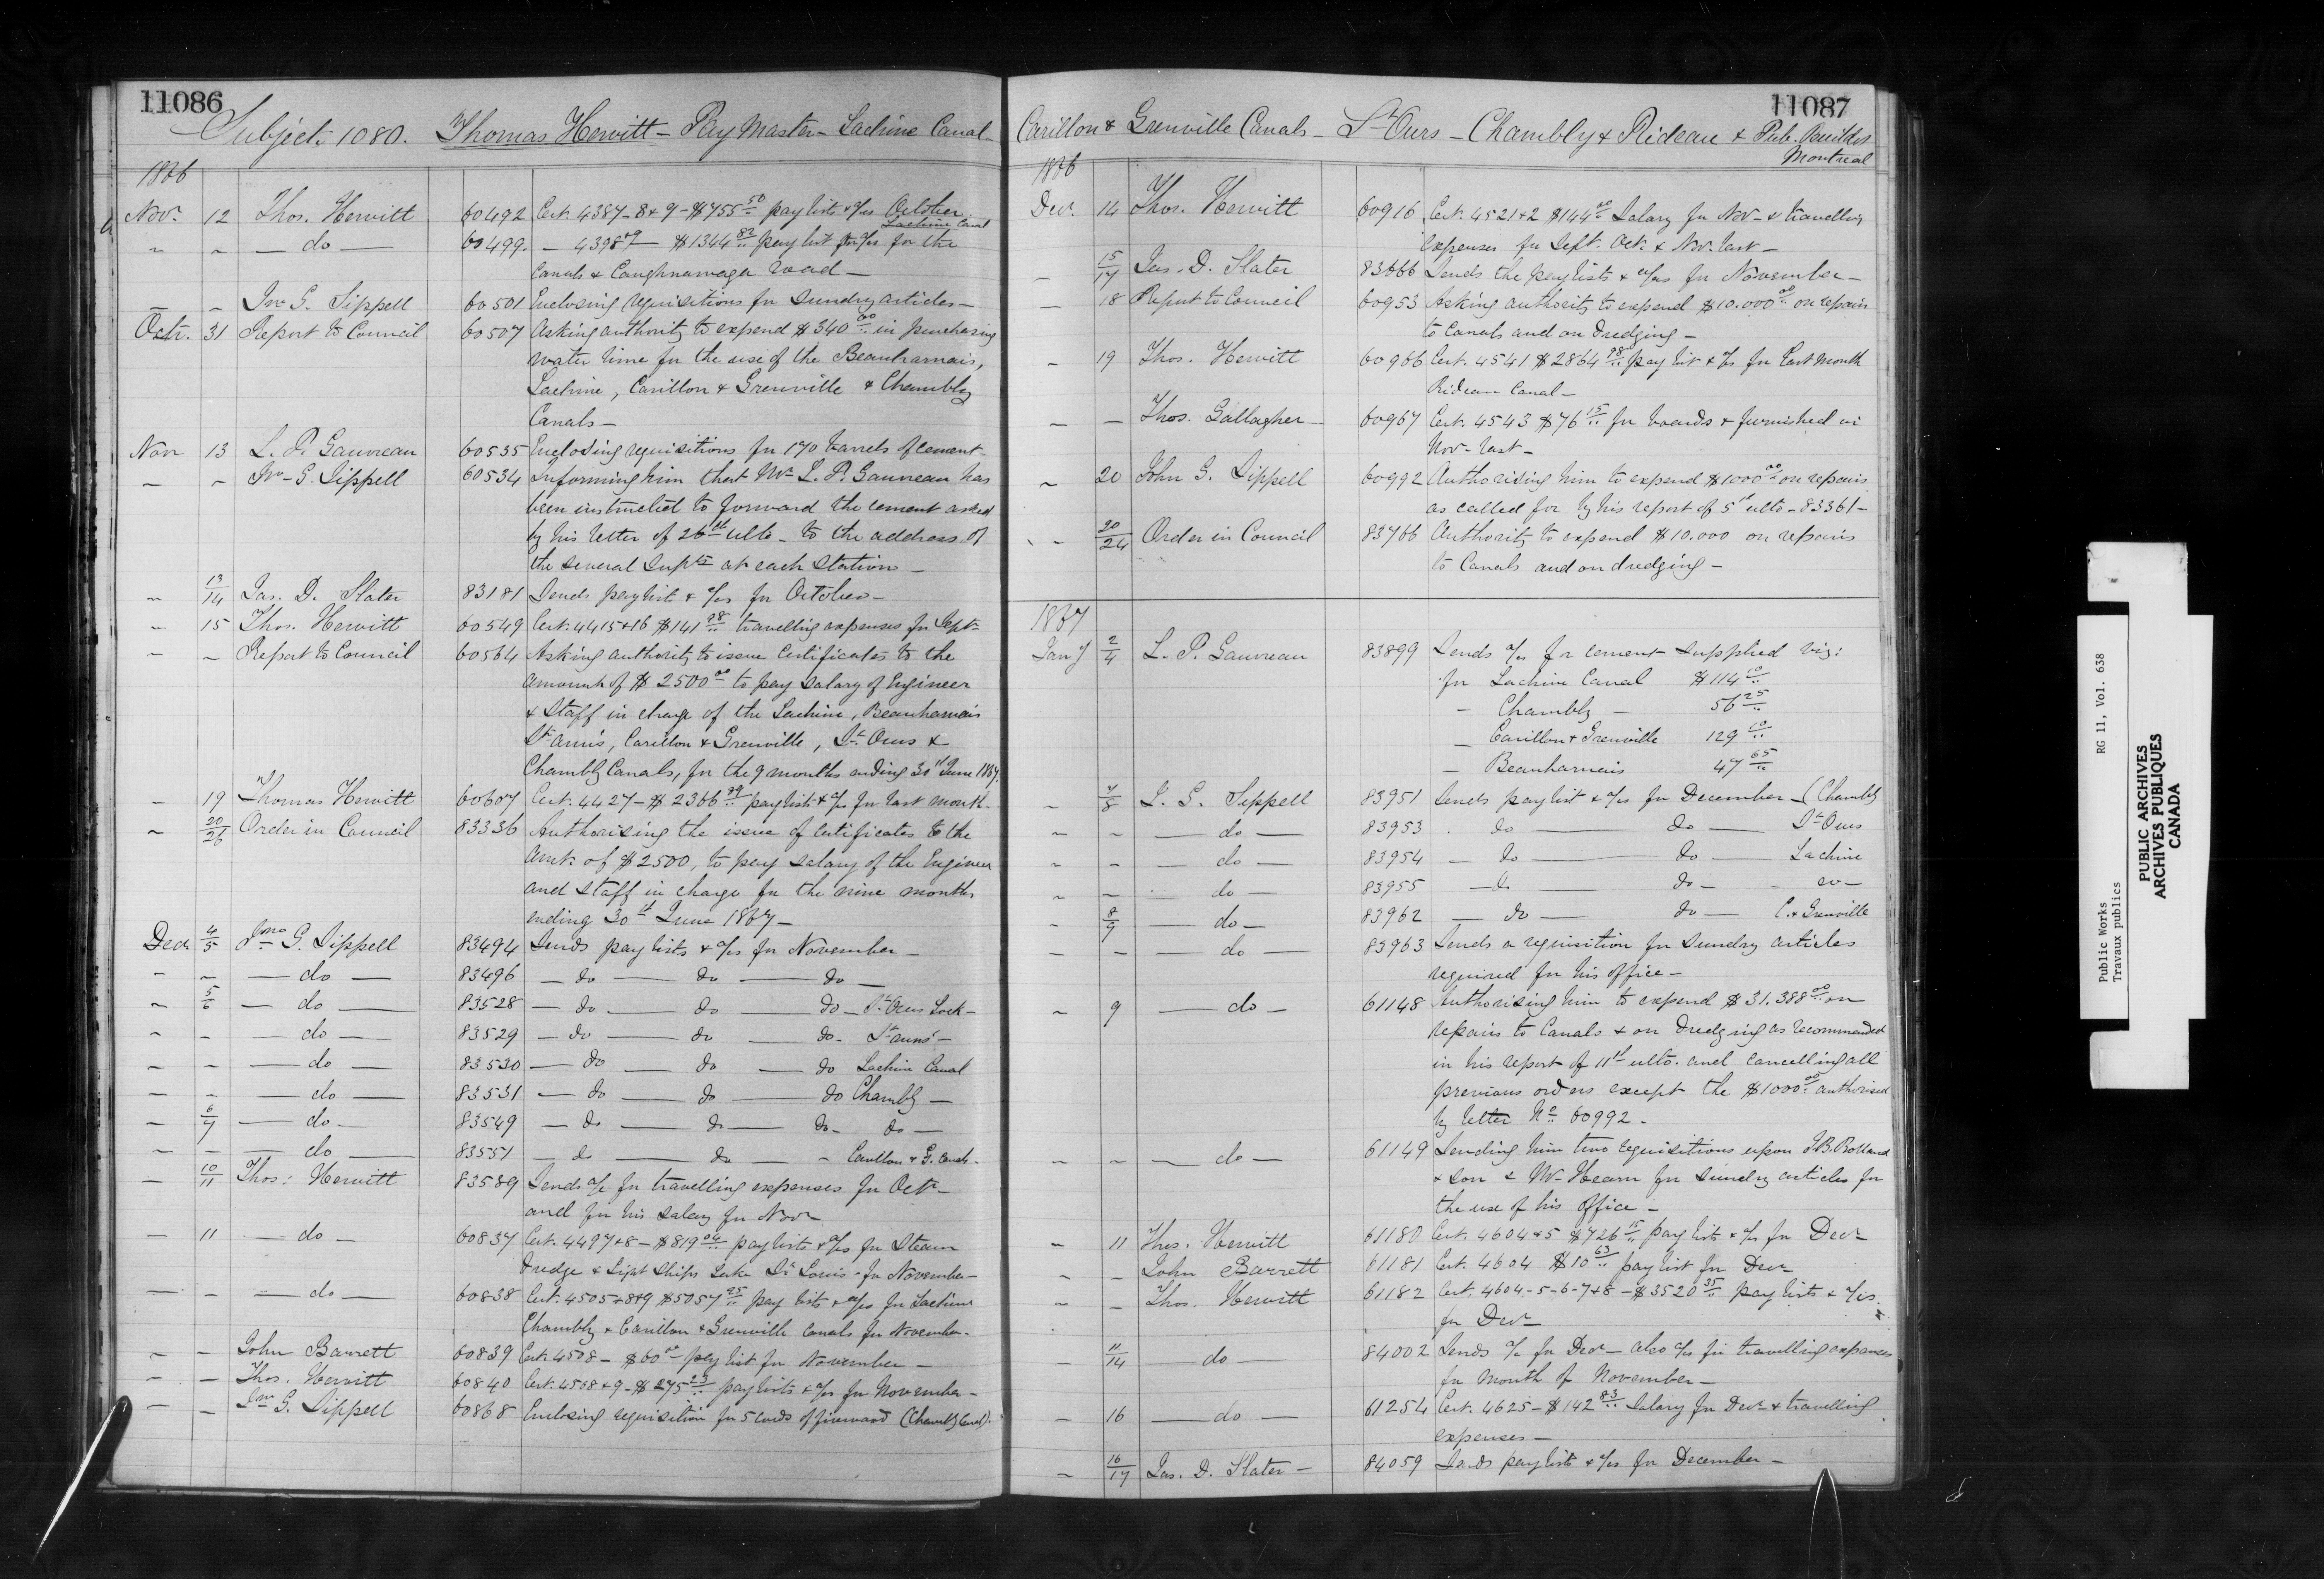 11086
Subject. 1080. Thomas Hewitt - Pay Master - Lachine Canal -
1866
Nov. 12 Thos. Hewitt 60492 Cert. 4387-8+9 - $755 50 pay lists + a/cs October.
" " - do - 60499. - 4398 $1344 82 pay list for a/cs for the Lachine Canal
Canals & Caughnawaga road -
- - Jno G. Sippell 60501 Enclosing requisitions for sundry articles -
Octr. 31 Report to Council 60507 Asking authority to expend $340 00 in purchasing
water lime for the use of the Beauharnais,
Lachine, Carillon & Grenville & Chambly
Canals -
Nov 13 L. P. Gauvreau 60535 Enclosing requisitions for 170 barrels of cement -
" " Jno - G. Sippell 60534 Informing him that Mr L. P. Gauvreau has
been instructed to forward the cement asked
by his letter of 26th ulto - to the address of
the several Supts at each station -
" 13/14 Jas. D. Slater 83181 Sends pay list + a/cs for October -
" 15 Thos. Hewitt 60549 Cert. 4415+16 $141 98 travelling expenses for Sept -
" " Report to Council 60564 Asking authority to issue Certificates to the
amount of $2500 00 to pay salary of Engineer
& Staff in charge of the Lachine, Beauharnais
St Anns, Carillon & Grenville, St Ours &
Chambly Canals, for the 9 months ending 30th June 1867.
- 19 Thomas Hewitt 60607 Cert. 4427 - $2366 pay list + a/c for last month -
" 20/26 Order in Council 83336 Authorising the issue of Certificates to the
Amt. of $2500, to pay salary of the Engineer
and staff in charge for the nine months
ending 30th June 1867 -
Decr 4/5 Jno G. Sippell 83494 Sends pay lists + a/cs for November -
" " - do - 83496 - do - do - do -
" 5/6 - do - 83528 - do - do - do - St Ours Lock -
" - - do - 83529 - do - do - do - St anns' -
- - - do - 83530 - do - do - do Lachine Canal
- - - do - 83531 - do - do - do Chambly -
" 6/7 - do - 83549 - do - do - do - do -
" - - do - 83551 - do - do - " Carillon & G. Canals -
- 10/11 Thos: Hewitt 83589 Sends a/c for travelling expenses for Octr -
and for his salary for Novr
- 11 - do - 60837 Cert. 4497+8 - $819 04 pay lists + a/cs for Steam
Dredge & Light Ships Lake St Louis - for November -
- - - do - 60838 Cert. 4505+8+9 $5057 25 pay lists + a/cs for Lachine
Chambly & Carillon & Grenville Canals for November -
" - John Barrett 60839 Cert. 4508 - $60 00 pay list for November -
- - Thos. Hewitt 60840 Cert. 4508+9 - $275 23 pay lists + a/cs for November -
- - Jno G. Sippell 60868 Enclosing requisition for 5 cords of firewood (Chambly Canal).
11087
Carillon & Grenville Canals - St Ours - Chambly & Rideau & Pub. Buildgs
Montreal
1866
Decr. 14 Thos. Hewitt 60916 Cert. 4521+2 $144 00 Salary for Nov - & travelling
expenses for Sept. Oct. & Nov. last -
- 15/17 Jas. D. Slater 83666 Sends the pay lists + a/cs for November -
- 18 Report to Council 60953 Asking authority to expend $10.000 00 on repairs
to Canals and on dredging -
- 19 Thos. Hewitt 60966 Cert. 4541 $2864 98 pay list + a/cs for last month
Rideau Canal -
- - Thos. Gallagher - 60967 Cert. 4543 $76 15 for boards & furnished in
Nov - last -
" 20 John G. Sippell 60992 Authorising him to expend $1000 00 on repairs
as called for by his report of 5th ulto - 83361 -
" - 20/24 Order in Council 83766 Authority to expend $10.000 on repairs
to Canals and on dredging -
1867
Jany 2/4 L. P. Gauvreau 83899 Sends a/cs for cement supplied viz:
for Lachine Canal $114 10
- Chambly - 56 25
- Carillon & Grenville 129 10
- Beauharnais 47 65
" 7/8 J. G. Sippell 83951 Sends pay list + a/cs for December - (Chambly
" - - do - 83953 . do - do - St Ours
- - - do - 83954 - do - do - Lachine
" - - do - 83955 - do - do - - do -
" 8/9 - do - 83962 - do - do - C. & Grenville
- - - do - 83963 Sends a requisition for sundry articles
required for his office -
" 9 - do - 61148 Authorising him to expend $31.388 00 on
repairs to Canals & on dredging as recommended
in his report of 11th ulto. and cancelling all
previous orders except the $1000 00 authorised
by letter No 60992.
" - - do - 61149 Sending him two requisitions upon J. B. Rolland
& Son & Mr Hearn for sundry articles for
the use of his office -
" 11 Thos. Hewitt 61180 Cert. 4604+5 $726 15 pay lists + a/cs for Decr
" - John Barrett 61181 Cert. 4604 $10 63 pay list for Decr
" - Thos. Hewitt 61182 Cert. 4604-5-6-7+8 - $3520 35 pay lists + a/cs.
for Decr
- 11/14 - do - 84002 Sends a/c for Decr - also a/cs for travelling expenses
for month of November -
- 16 - do - 61254 Cert. 4625 - $142 83 Salary for Decr & travelling
expenses -
" 16/17 Jas. D. Slater - 84059 Sends pay lists + a/cs for December -
Public Works RG 11, Vol. 638
Travaux publics
PUBLIC ARCHIVES
ARCHIVES PUBLIQUES
CANADA